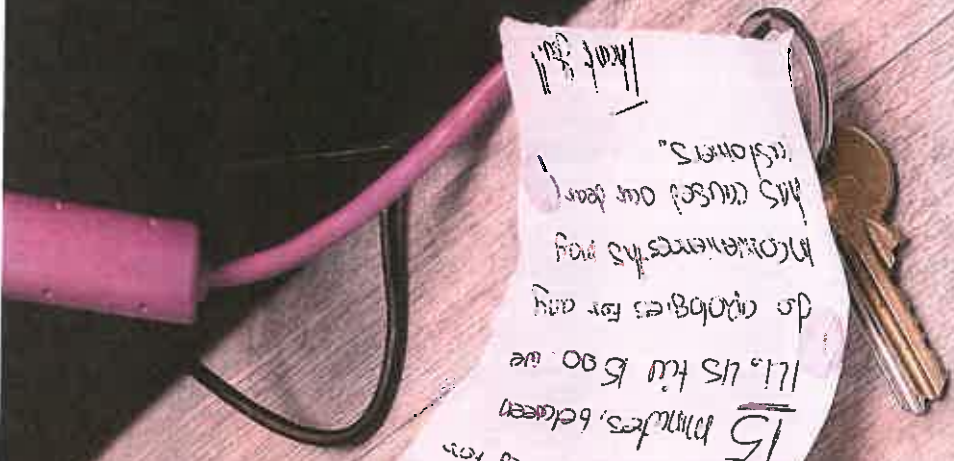 15 minutes, between
14.45 till 15.00 we
do apologies for any
inconveniences this may
has caused our dear
customers."
Thank you